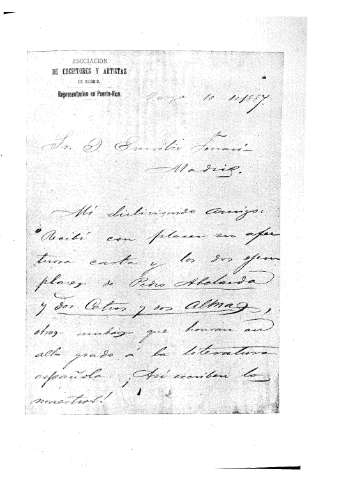 ASOCIACION
DE ESCRITORES Y ARTISTAS
DE MADRID.
Representación en Puerto-Rico.
Mayo 10 1887
Sr. D. Emilio Ferrari
Madrid.
Mi distinguido amigo:
Recibí con placer su afec
tuosa carta y los dos ejem
plares de Pedro Abelardo
y dos Cetros y dos Almas,
obras ambas que honran en
alto grado a la literatura
española. ¡Así escriben los
maestros!